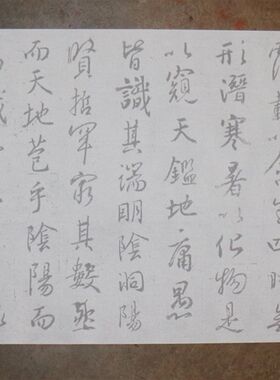 載以含生四時無
形潛寒暑以化物是
以窺天鑑地庸愚
皆識其端明陰洞陽
賢哲罕窮其數然
而天地苞乎陰陽而